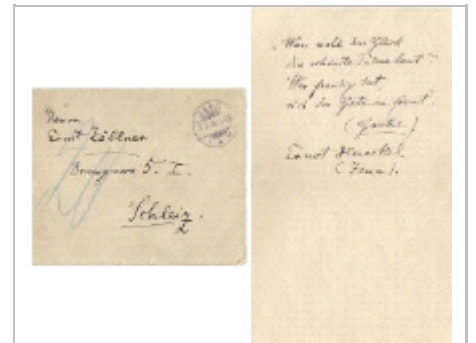 Herrn
Ernst Zöllner
5. I.
Schleiz.
"Wem wohl das Glück
die schönste Palme beut?
Wer freudig tut,
sich des Getanen freut."
(Goethe)
Ernst Haeckel
(Jena).